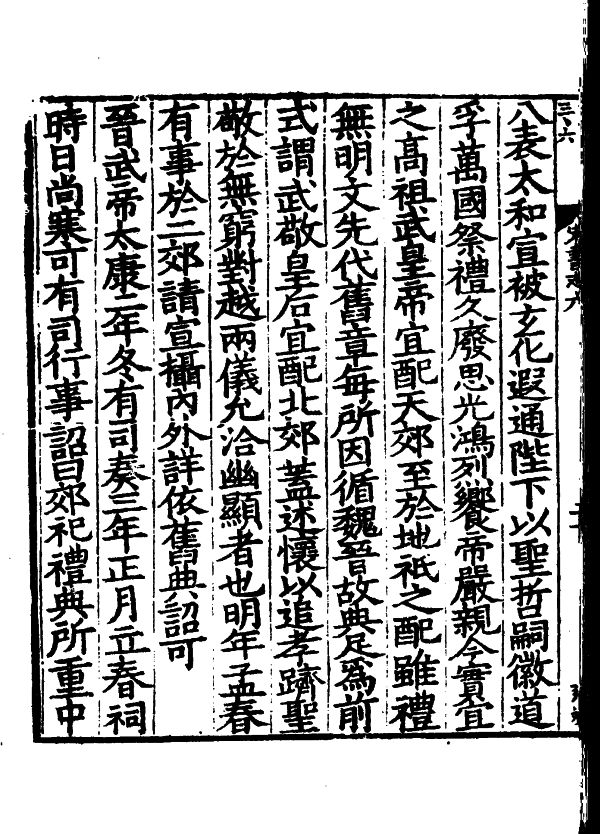 三六
八表太和宣被玄化遐通陛下以聖哲嗣徽道
孚萬國祭禮久廢思光鴻烈饗帝嚴親今實宜
之高祖武皇帝宜配天郊至於地祇之配雖禮
無明文先代舊章每所因循魏晉故典足爲前
式謂武敬皇后宜配北郊蓋述懷以追孝躋聖
敬於無窮對越兩儀允洽幽顯者也明年孟春
有事於二郊請宣攝內外詳依舊典詔可
晉武帝太康三年冬有司奏三年正月立春祠
時日尚寒可有司行事詔曰郊祀禮典所重中